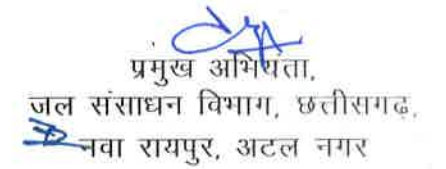 प्रमुख अभियंता,
जल संसाधन विभाग, छत्तीसगढ़,
नवा रायपुर, अटल नगर